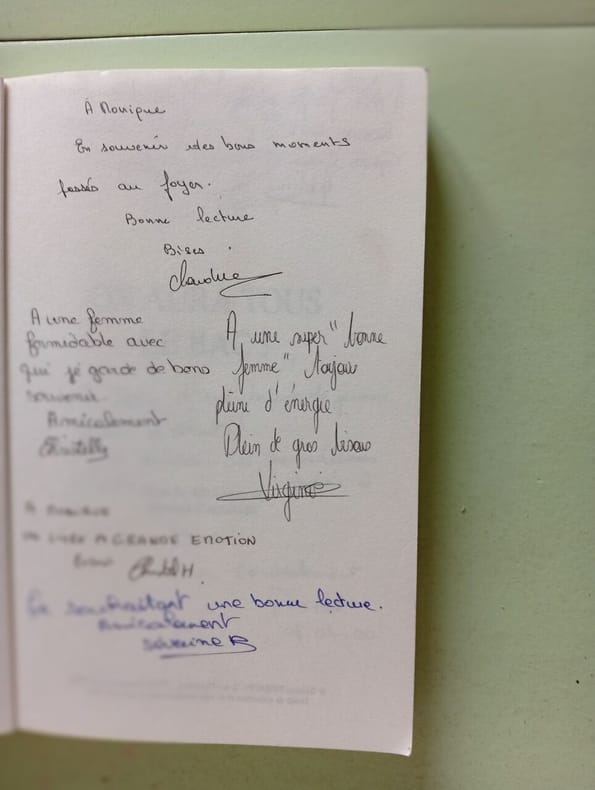 À Monique
En souvenir des bons moments
passés au foyer.
Bonne lecture
Bises.
Claudine
A une femme
formidable avec
qui je garde de bons
souvenir.
Amicalement
A une super "bonne
femme" toujours
pleine d'énergie
Plein de gros bisous
Virginie
A Monique
UN LIVRE A GRANDE EMOTION
En souhaitant une bonne lecture.
Amicalement
Séverine B